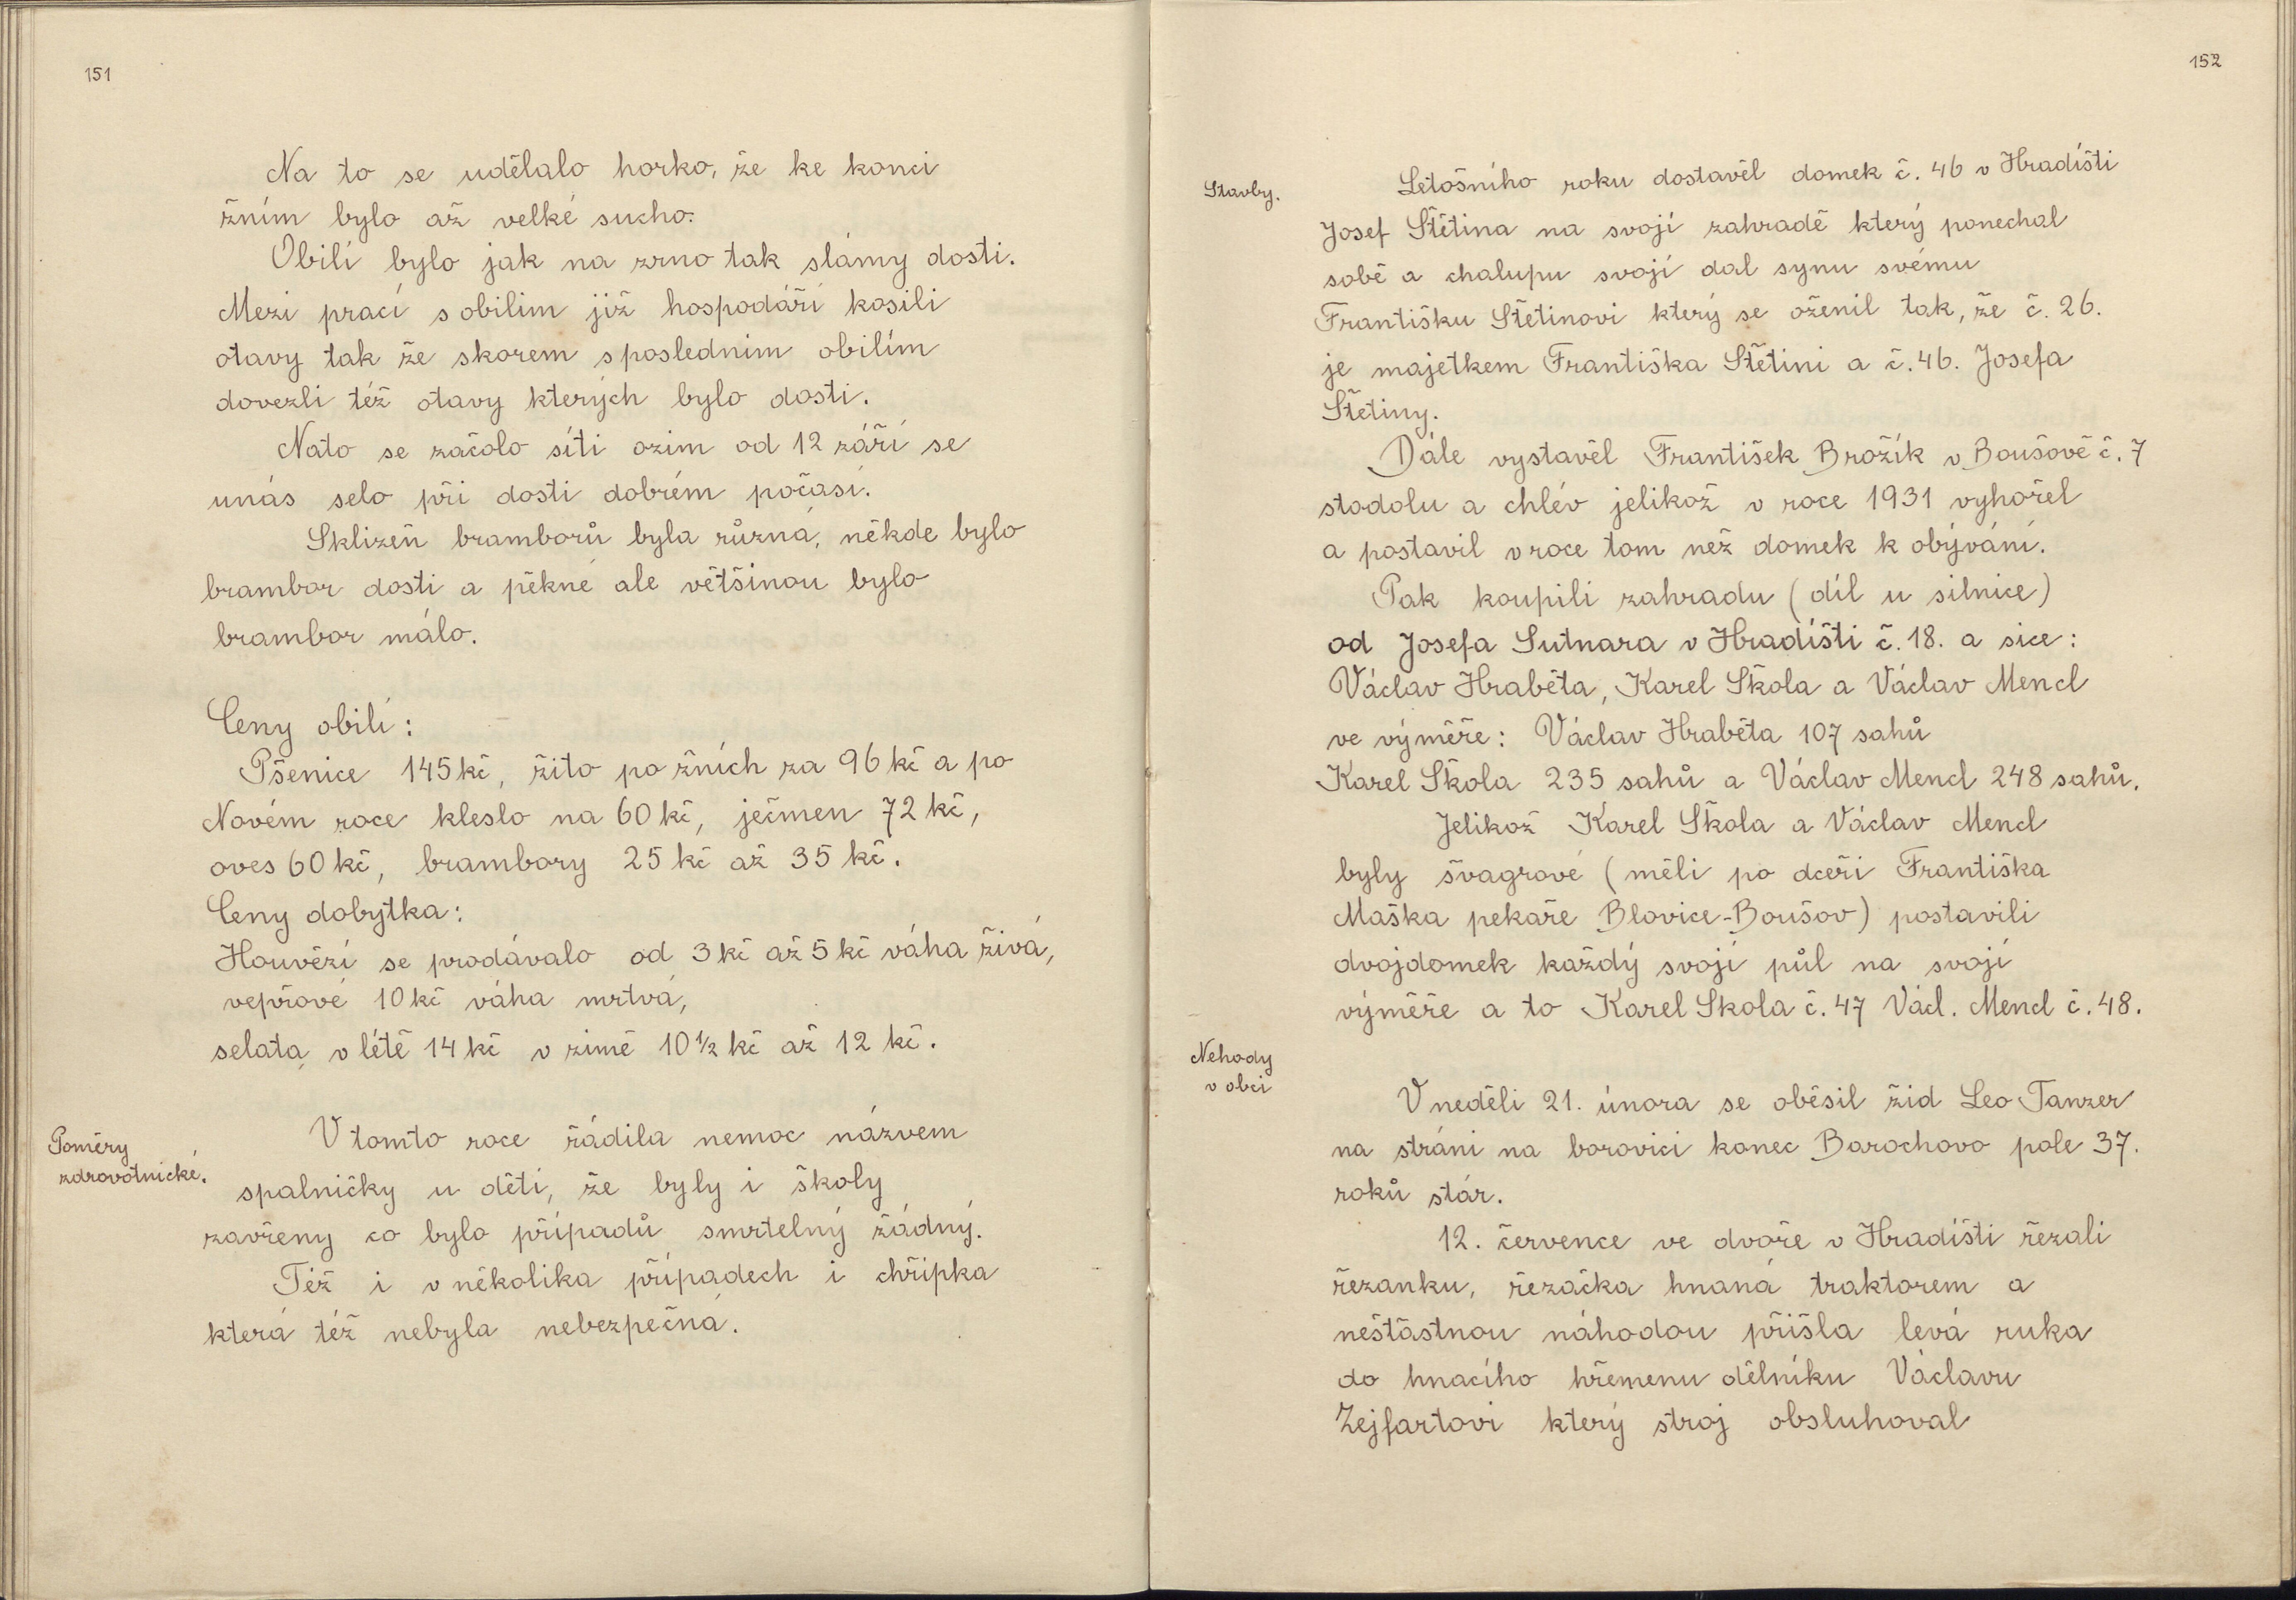 151
Na to se udělalo horko, že ke konci
žním bylo až velké sucho.
Obilí bylo jak na zrno tak slámy dosti.
Mezi prací s obilim již hospodáři kosili
otavy tak že skorem s poslednim obilím
dovezli též otavy kterých bylo dosti.
Nato se začolo síti ozim od 12 září se
unás selo při dosti dobrém počasí.
Sklizeň bramborů byla různá, někde bylo
brambor dosti a pěkné ale většinou bylo
brambor málo.
Ceny obilí:
Pšenice 145 kč, žito po žních za 96 kč a po
Novém roce kleslo na 60 kč, ječmen 72 kč,
oves 60 kč, brambory 25 kč až 35 kč.
Ceny dobytka:
Houvězí se prodávalo od 3 kč až 5 kč váha živá,
vepřové 10 kč váha mrtvá,
selata, v létě 14 kč v zimě 10 ½ kč až 12 kč.
Poměry
zdravotnické.
V tomto roce řádila nemoc názvem
spalničky u dětí, že byly i školy
zavřeny co bylo případů smrtelný žádný.
Též i v několika případech i chřipka
která též nebyla nebezpečná.
152
Stavby.
Letošního roku dostavěl domek č. 46 v Hradišti
Josef Štětina na svojí zahradě který ponechal
sobě a chalupu svojí dal synu svému
Františku Štětinovi který se oženil tak, že č. 26.
je majetkem Františka Štětini a č. 46. Josefa
Štětiny.
Dále vystavěl František Brožík v Boušově č. 7
stodolu a chlév jelikož v roce 1931 vyhořel
a postavil v roce tom než domek k obývání.
Pak koupili zahradu (díl u silnice)
od Josefa Sutnara v Hradišti č. 18. a sice:
Václav Hraběta, Karel Škola a Václav Mencl
ve výměře: Václav Hraběta 107 sahů
Karel Škola 235 sahů a Václav Mencl 248 sahů.
Jelikož Karel Škola a Václav Mencl
byly švagrové (měli po dceři Františka
Maška pekaře Blovice-Boušov) postavili
dvojdomek každý svojí půl na svojí
výměře a to Karel Škola č. 47 Václ. Mencl č. 48.
Nehody
v obci
V neděli 21. února se oběsil žid Leo Tanzer
na stráni na borovici konec Barochovo pole 37.
roků stár.
12. července ve dvoře v Hradišti řezali
řezanku, řezačka hnaná traktorem a
nešťastnou náhodou přišla levá ruka
do hnacího hřemenu dělníku Václavu
Zejfartovi který stroj obsluhoval